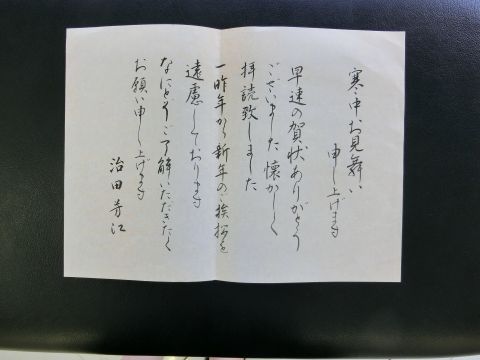 寒中お見舞い
申し上げます
早速の賀状ありがとう
ございました 懐かしく
拝読致しました
一昨年から新年のご挨拶を
遠慮しております
なにとぞご了解いただきたく
お願い申し上げます
治田芳江